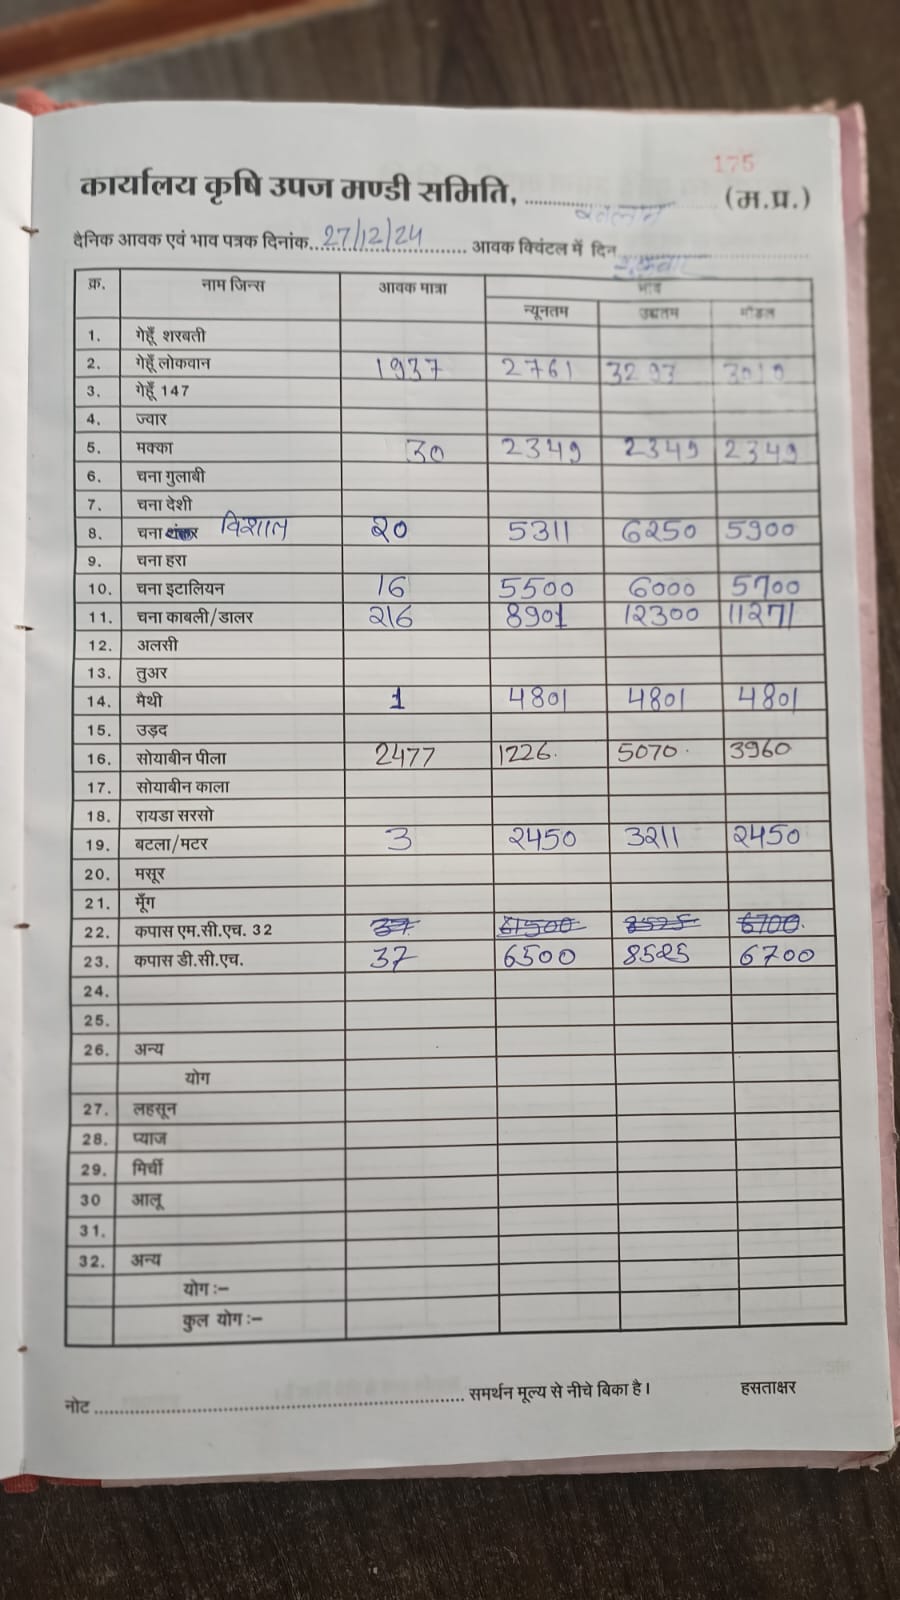 175
कार्यालय कृषि उपज मण्डी समिति, रतलाम (म.प्र.)
दैनिक आवक एवं भाव पत्रक दिनांक 27/12/24 आवक क्विंटल में दिन शुक्रवार
क्र. नाम जिन्स आवक मात्रा भाव
न्यूनतम उच्चतम मॉडल
1. गेहूँ शरबती
2. गेहूँ लोकवान 1937 2761 3293
3. गेहूँ 147
4. ज्वार
5. मक्का 30 2349 2349 2349
6. चना गुलाबी
7. चना देशी
8. चना विशाल 20 5311 6250 5900
9. चना हरा
10. चना इटालियन 16 5500 6000 5700
11. चना काबली/डालर 216 8901 12300 11271
12. अलसी
13. तुअर
14. मैथी 1 4801 4801 4801
15. उड़द
16. सोयाबीन पीला 2477 1226. 5070. 3960
17. सोयाबीन काला
18. रायडा सरसो
19. बटला/मटर 3 2450 3211 2450
20. मसूर
21. मूँग
22. कपास एम.सी.एच. 32 37 8525 6700.
23. कपास डी.सी.एच. 37 6500 8525 6700
24.
25.
26. अन्य
योग
27. लहसून
28. प्याज
29. मिर्ची
30 आलू
31.
32. अन्य
योग :–
कुल योग :–
नोट समर्थन मूल्य से नीचे बिका है। हसताक्षर